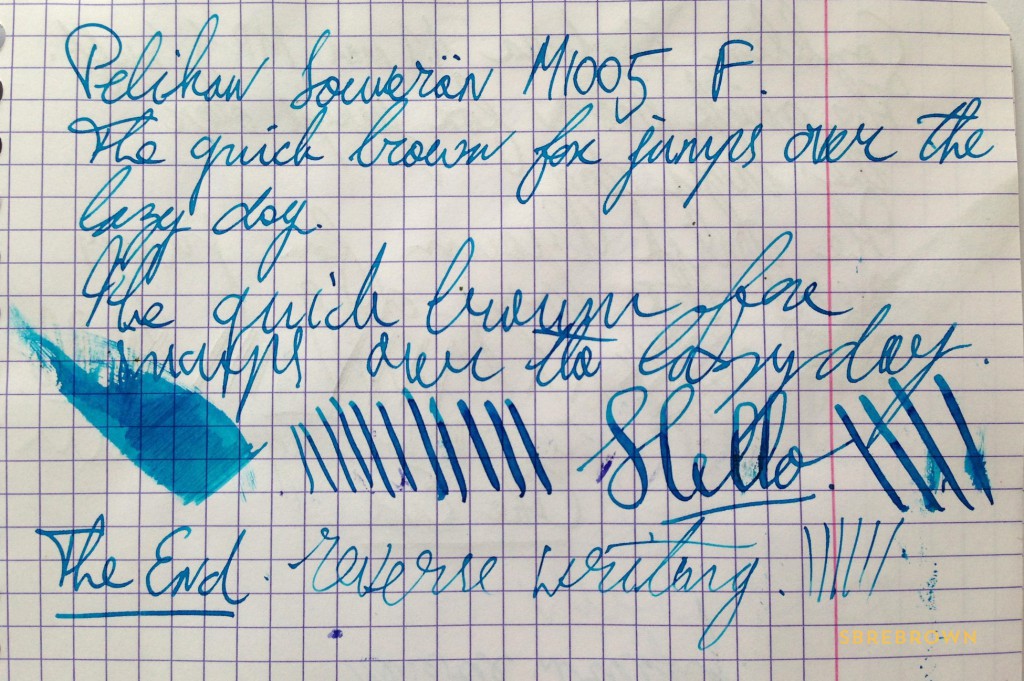 Pelikan Souverän M1005 F.
The quick brown fox jumps over the
lazy dog.
The quick brown fox
jumps over the lazy dog.
Hello.
The End. reverse writing.
SBREBROWN